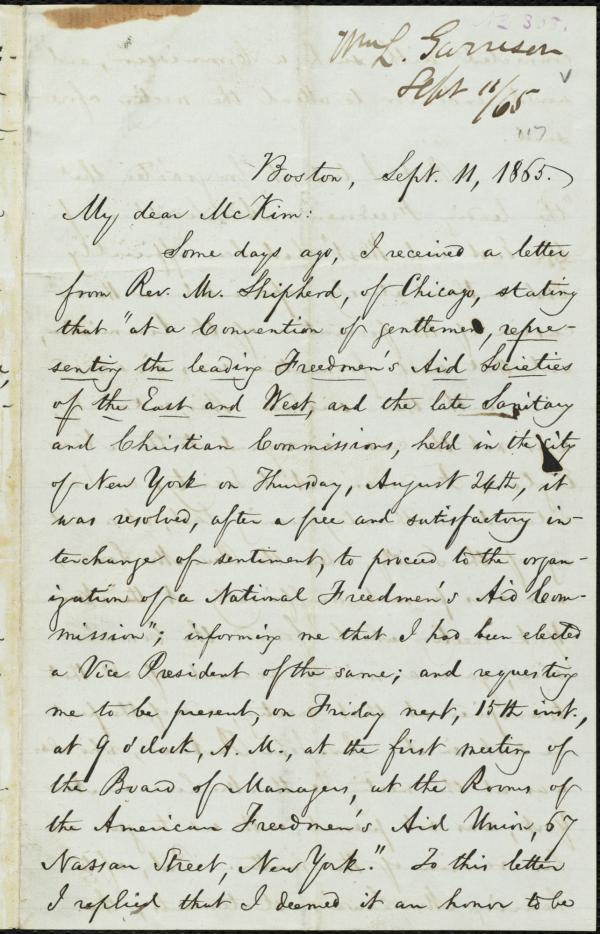 Wm L. Garrison
Sept 11/65
Boston, Sept. 11, 1865.
My dear McKim:
Some days ago, I received a letter
from Rev. Mr. Shipherd, of Chicago, stating
that "at a Convention of gentlemen, repre-
senting the leading Freedmen's Aid Societies
of the East and West, and the late Sanitary
and Christian Commissions, held in the city
of New York on Thursday, August 24th, it
was resolved, after a free and satisfactory in-
terchange of sentiment, to proceed to the organ-
ization of a National Freedmen's Aid Com-
mission"; informing me that I had been elected
a Vice President of the same; and requesting
me to be present, on Friday next, 15th inst.,
at 9 o'clock, A. M., at the first meeting of
the Board of Managers, at the Rooms of
the American Freedmen's Aid Union, 67
Nassau Street, New York." To this letter
I replied that I deemed it an honor to be